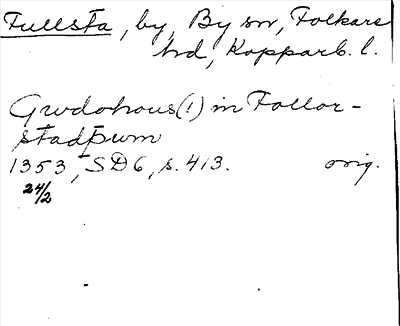 Fullsta, by, By sn, Folkare
hd, Kopparb. l.
Gudohous(!) in Follor-
stadhum
1353, SD6, s. 413. orig.
24/2